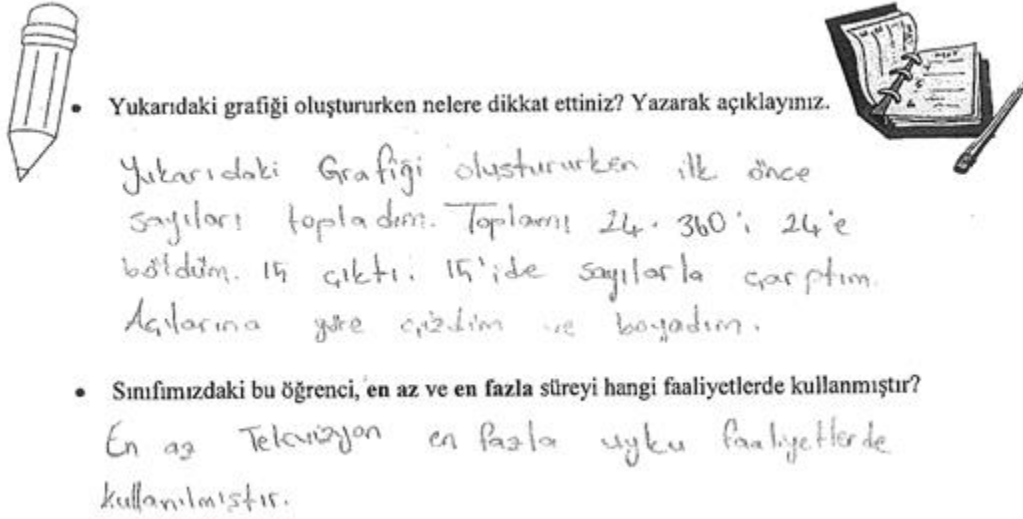 • Yukarıdaki grafiği oluştururken nelere dikkat ettiniz? Yazarak açıklayınız.
Yukarıdaki Grafiği oluştururken ilk önce
sayıları topladım. Toplamı 24. 360'ı 24'e
böldüm. 15 çıktı. 15'ide sayılarla çarptım.
Açılarına göre çizdim ve boyadım.
• Sınıfımızdaki bu öğrenci, en az ve en fazla süreyi hangi faaliyetlerde kullanmıştır?
En az Televizyon en fazla uyku faaliyetlerde
kullanılmıştır.